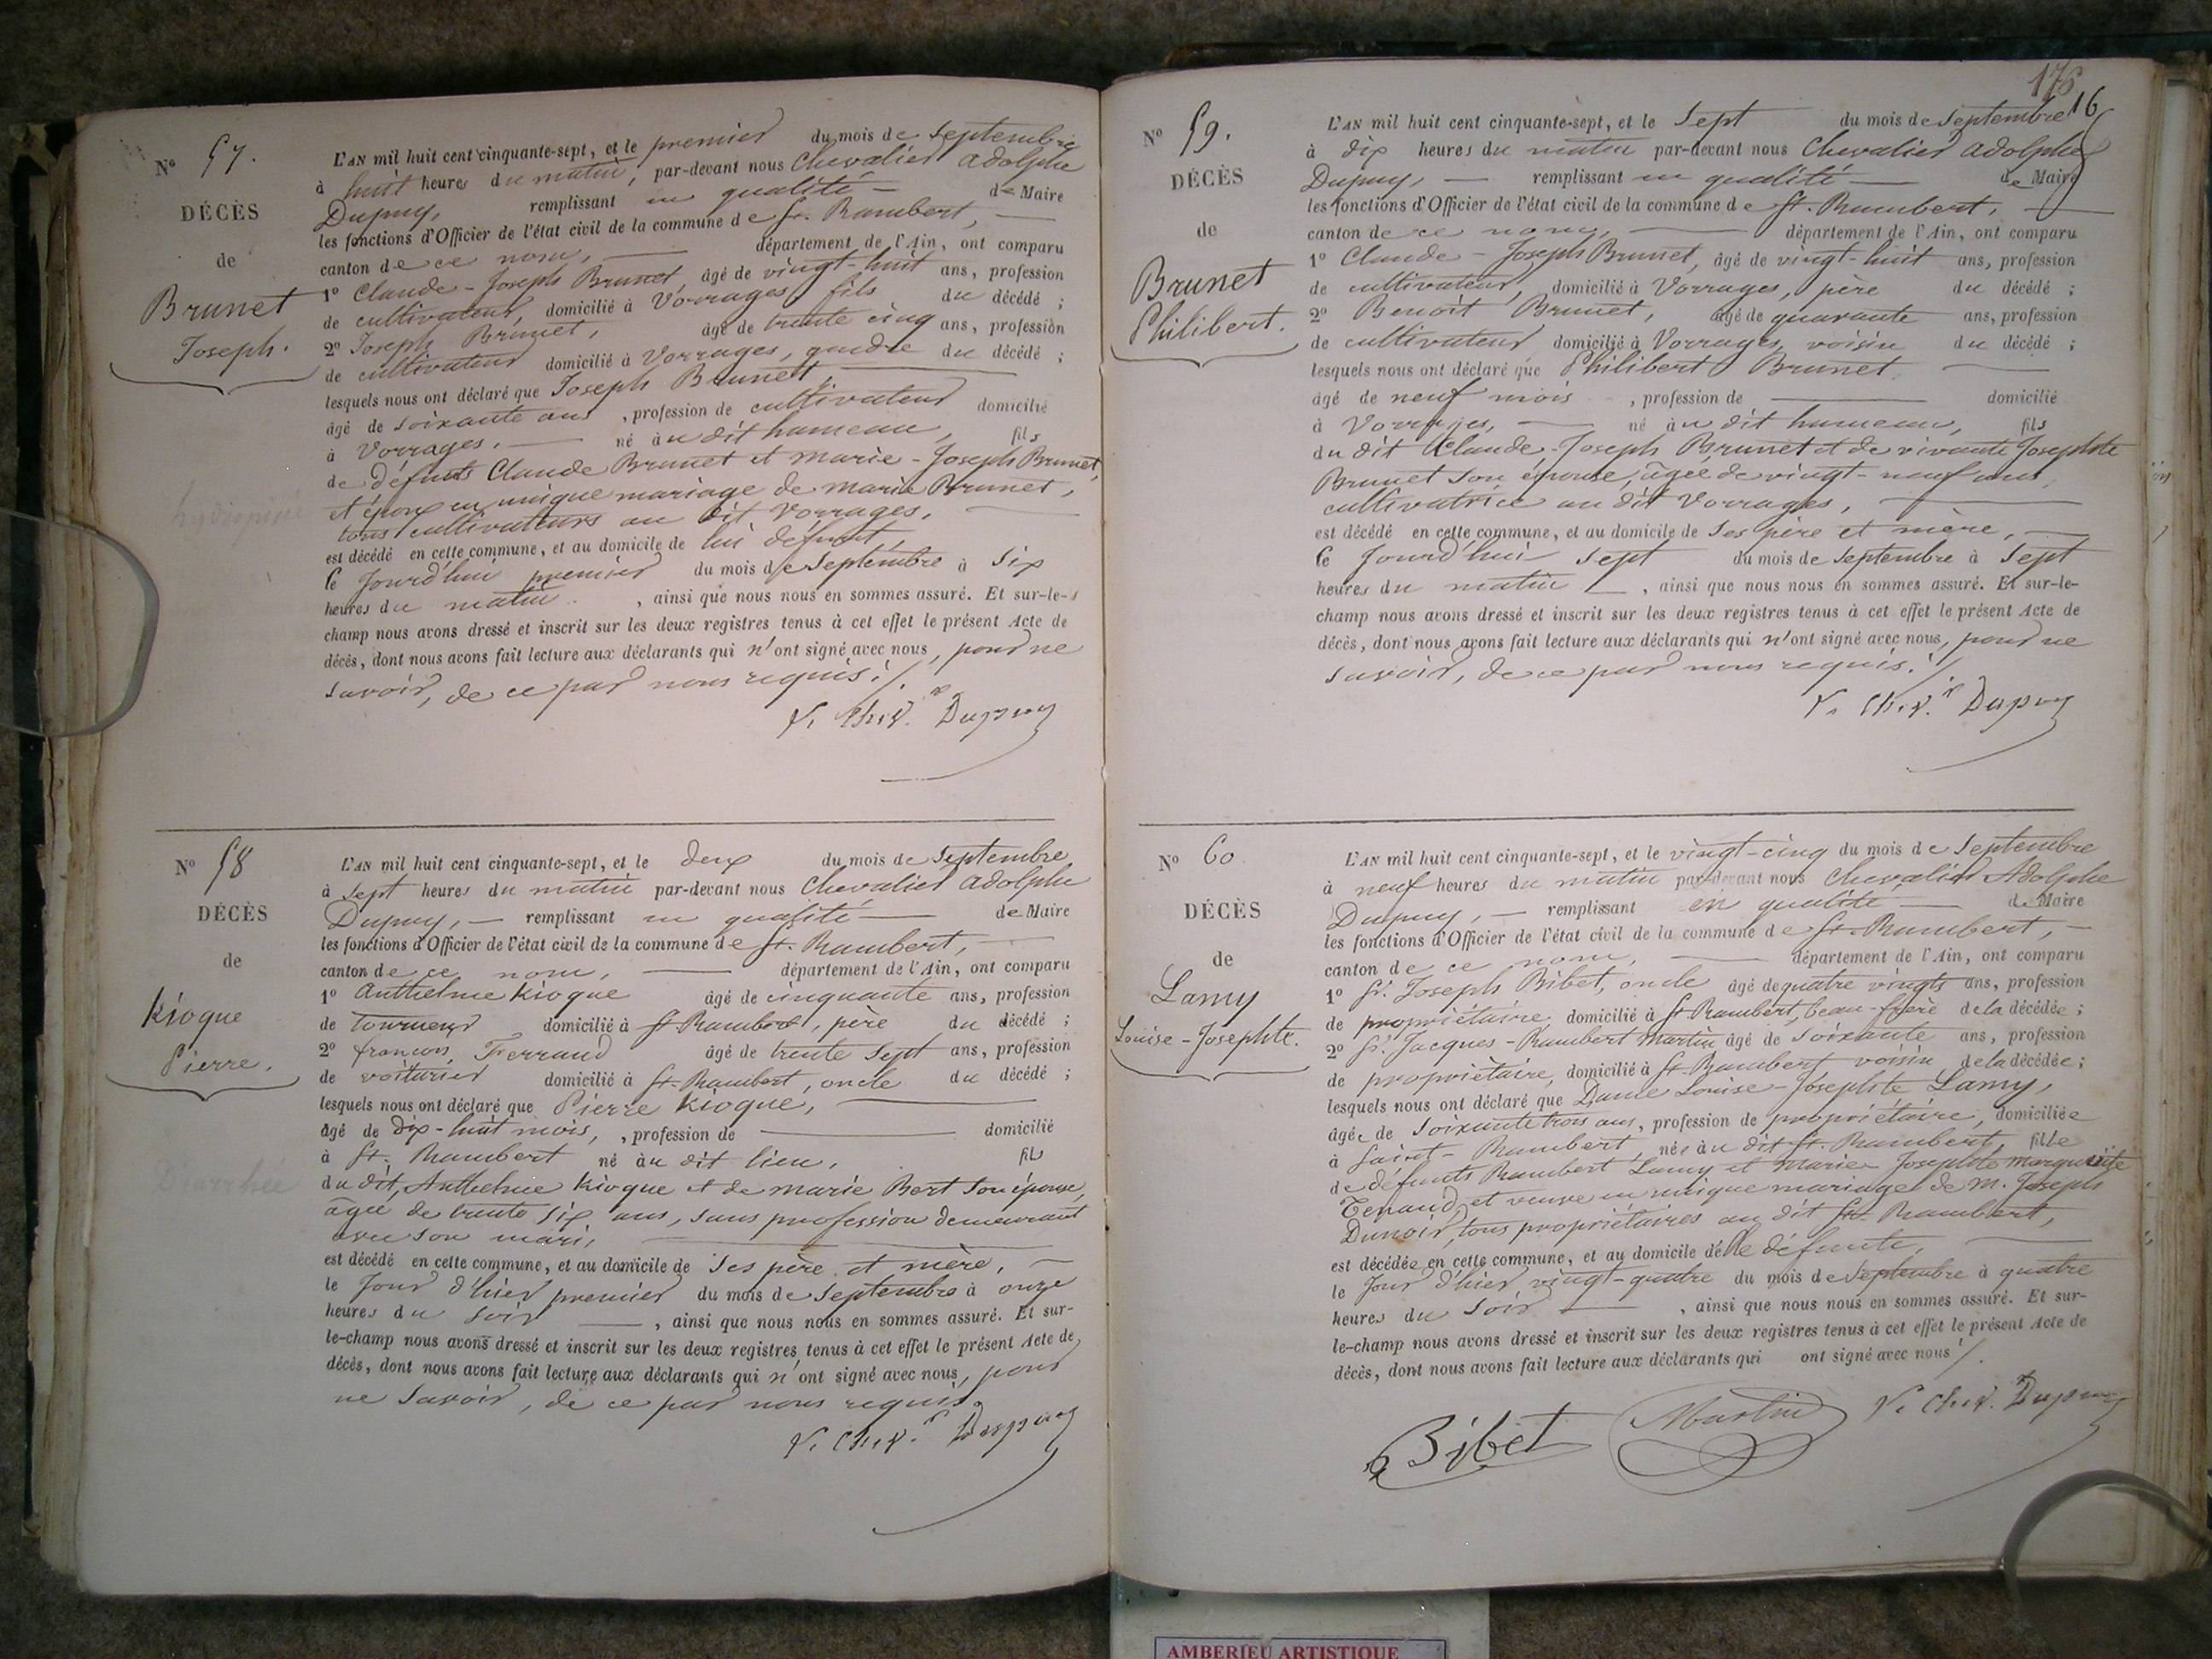 N° 57.
DÉCÈS
de
Brunet
Joseph.
L'AN mil huit cent cinquante-sept, et le premier du mois de Septembre
à huit heures du matin, par-devant nous Chevalier Adolphe
Dupuy, remplissant en qualité — de Maire
les fonctions d'Officier de l'état civil de la commune de St. Rambert, —
canton de ce nom, — département de l'Ain, ont comparu
1° Claude-Joseph Brunet, âgé de vingt-huit ans, profession
de cultivateur, domicilié à Vorrages, fils du décédé ;
2° Joseph Brunet, âgé de trente cinq ans, profession
de cultivateur domicilié à Vorrages, gendre du décédé ;
lesquels nous ont déclaré que Joseph Brunet, —
âgé de soixante ans, profession de cultivateur domicilié
à Vorrages, — né au dit hameau, fils
de défunts Claude Brunet et Marie-Joseph Brunet,
et époux en unique mariage de Marie Brunet,
tous cultivateurs au dit Vorrages, —
est décédé en cette commune, et au domicile de lui défunt,
le Jourd'hui premier du mois de Septembre à Six
heures du matin, ainsi que nous nous en sommes assuré. Et sur-le-
champ nous avons dressé et inscrit sur les deux registres tenus à cet effet le présent Acte de
décès, dont nous avons fait lecture aux déclarants qui n'ont signé avec nous, pour ne
savoir, de ce par nous requis ./.
V. Chev.r Dupuy
hydropisie
N° 58
DÉCÈS
de
Kioque
Pierre.
L'AN mil huit cent cinquante-sept, et le deux du mois de Septembre
à Sept heures du matin par-devant nous Chevalier Adolphe
Dupuy, — remplissant en qualité — de Maire
les fonctions d'Officier de l'état civil de la commune de St. Rambert, —
canton de ce nom, — département de l'Ain, ont comparu
1° Anthelme Kioque âgé de cinquante ans, profession
de tourneur domicilié à St Rambert, père du décédé ;
2° françois Ferraud âgé de trente Sept ans, profession
de voiturier domicilié à St. Rambert, oncle du décédé ;
lesquels nous ont déclaré que Pierre Kioque, —
âgé de dix-huit mois, , profession de — domicilié
à St. Rambert né au dit lieu, fils
du dit, Anthelme Kioque et de Marie Bert Son épouse,
âgée de trente six ans, sans profession demeurant
avec son mari, —
est décédé en cette commune, et au domicile de ses père et mère, —
le Jour d'hier premier du mois de Septembre à onze
heures du soir —, ainsi que nous nous en sommes assuré. Et sur-
le-champ nous avons dressé et inscrit sur les deux registres tenus à cet effet le présent Acte de
décès, dont nous avons fait lecture aux déclarants qui n'ont signé avec nous, pour
ne savoir, de ce par nous requis.
V. Chev.r Dupuy
Diarrhée
176
16
N° 59.
DÉCÈS
de
Brunet
Philibert.
L'AN mil huit cent cinquante-sept, et le Sept du mois de Septembre
à dix heures du matin par-devant nous Chevalier Adolphe
Dupuy, — remplissant en qualité — de Maire
les fonctions d'Officier de l'état civil de la commune de St. Rambert, —
canton de ce nom, — département de l'Ain, ont comparu
1° Claude-Joseph Brunet, âgé de vingt-huit ans, profession
de cultivateur, domicilié à Vorrages, père du décédé ;
2° Benoit Brunet, âgé de quarante ans, profession
de cultivateur domicilié à Vorrages, voisin du décédé ;
lesquels nous ont déclaré que Philibert Brunet —
âgé de neuf mois, profession de — domicilié
à Vorrages, — né au dit hameau, fils
du dit Claude-Joseph Brunet et de vivante Josephte
Brunet son épouse, âgée de vingt-neuf ans,
cultivatrice au dit Vorrages, —
est décédé en cette commune, et au domicile de ses père et mère, —
le Jourd'hui Sept du mois de Septembre à Sept
heures du matin —, ainsi que nous nous en sommes assuré. Et sur-le-
champ nous avons dressé et inscrit sur les deux registres tenus à cet effet le présent Acte de
décès, dont nous avons fait lecture aux déclarants qui n'ont signé avec nous, pour ne
savoir, de ce par nous requis ./.
V. Chev.r Dupuy
N° 60
DÉCÈS
de
Lamy
Louise-Josephte.
L'AN mil huit cent cinquante-sept, et le vingt-cinq du mois de Septembre
à neuf heures du matin par-devant nous Chevalier Adolphe
Dupuy, — remplissant en qualité — de Maire
les fonctions d'Officier de l'état civil de la commune de St. Rambert, —
canton de ce nom, — département de l'Ain, ont comparu
1° Sr. Joseph Bibet, oncle âgé de quatre vingts ans, profession
de propriétaire, domicilié à St Rambert, beau-frère de la décédée ;
2° Sr. Jacques-Rambert Martin âgé de soixante ans, profession
de propriétaire, domicilié à St. Rambert voisin de la décédée ;
lesquels nous ont déclaré que Dame Louise-Josephte Lamy,
âgée de soixante trois ans, profession de propriétaire, domiciliée
à Saint-Rambert, née au dit St. Rambert, fille
de défunts Rambert Lamy et Marie Josephte Marguerite
Tenaud, et veuve en unique mariage de M. Joseph
Dunoir, tous propriétaires au dit St. Rambert,
est décédée en cette commune, et au domicile d'elle défunte, —
le Jour d'hier vingt-quatre du mois de Septembre à quatre
heures du Soir —, ainsi que nous nous en sommes assuré. Et sur-
le-champ nous avons dressé et inscrit sur les deux registres tenus à cet effet le présent Acte de
décès, dont nous avons fait lecture aux déclarants qui ont signé avec nous ./.
Bibet Martin V. Chev.r Dupuy
AMBERIEU ARTISTIQUE